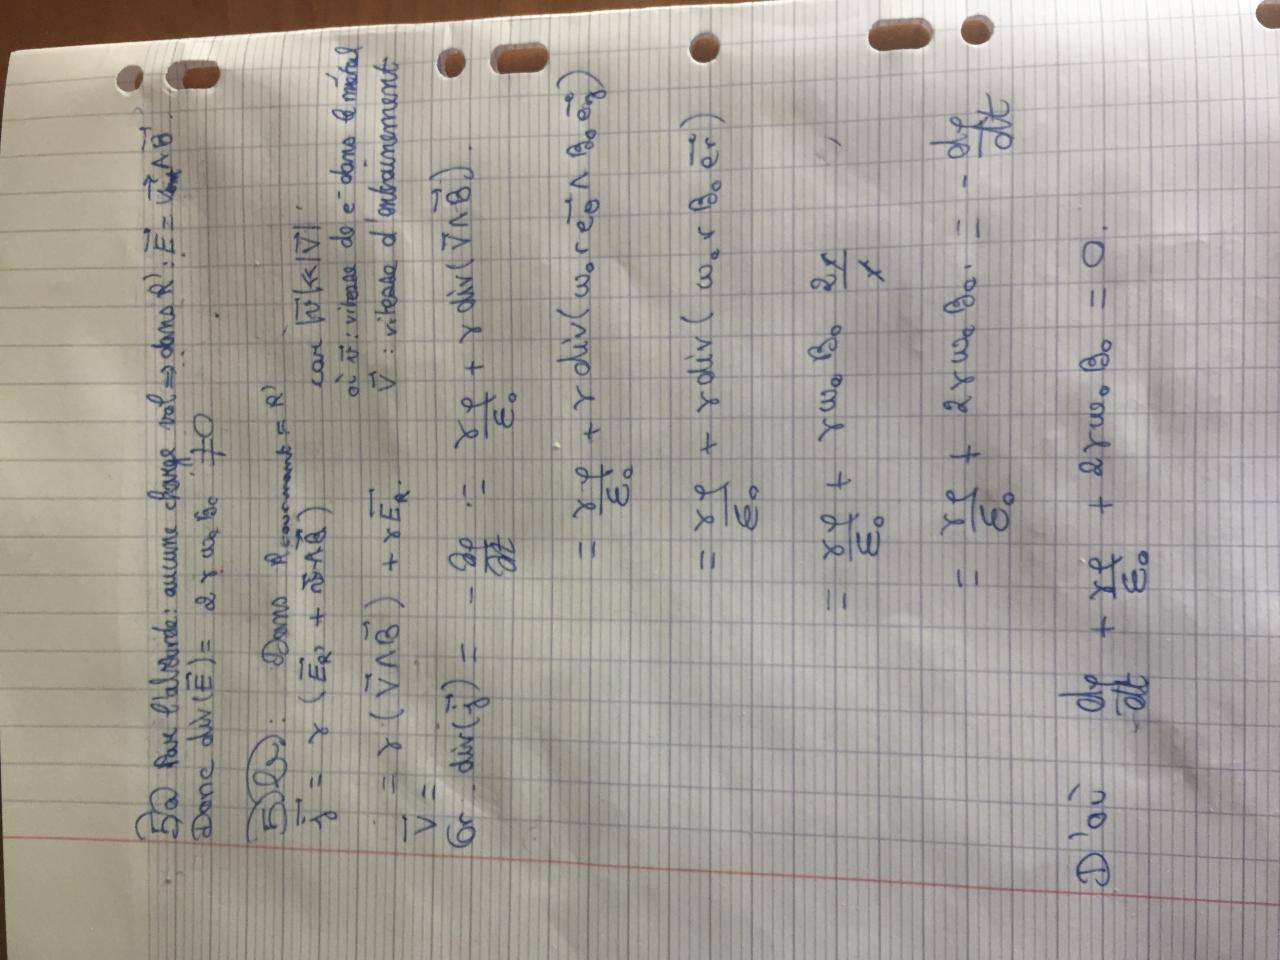 5)a) Par l'absurde: aucune charge vol ⇒ dans R' : E⃗ = V⃗ ∧ B⃗.
Donc div(E⃗) = 2 γ ω₀ B₀ ≠ 0
5)b): Dans R = R'
j⃗ = γ (E⃗_R' + v⃗ ∧ B⃗) car |v⃗| ≪ |V⃗|
où v⃗ : vitesse de e⁻ dans le métal
= γ (V⃗ ∧ B⃗) + γ E⃗_R. V⃗ : vitesse d'entrainement
V⃗ =
Or div(j⃗) = - ∂ρ/∂t = γρ/ε₀ + γ div(V⃗ ∧ B⃗).
= γρ/ε₀ + γ div(ω₀ r e⃗_θ ∧ B₀ e⃗_z)
= γρ/ε₀ + γ div(ω₀ r B₀ e⃗_r)
= γρ/ε₀ + γ ω₀ B₀ 2r/r
= γρ/ε₀ + 2γω₀B₀ = - dρ/dt
D'où dρ/dt + γρ/ε₀ + 2γω₀B₀ = 0.